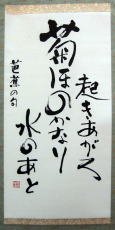 起きあがる
菊ほのかなり
水のあと
芭蕉の句